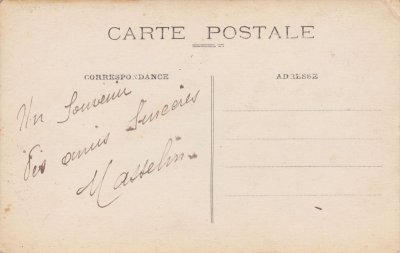 CARTE POSTALE
CORRESPONDANCE
ADRESSE
Un Souvenir
Vos amis Sincères
Masselin